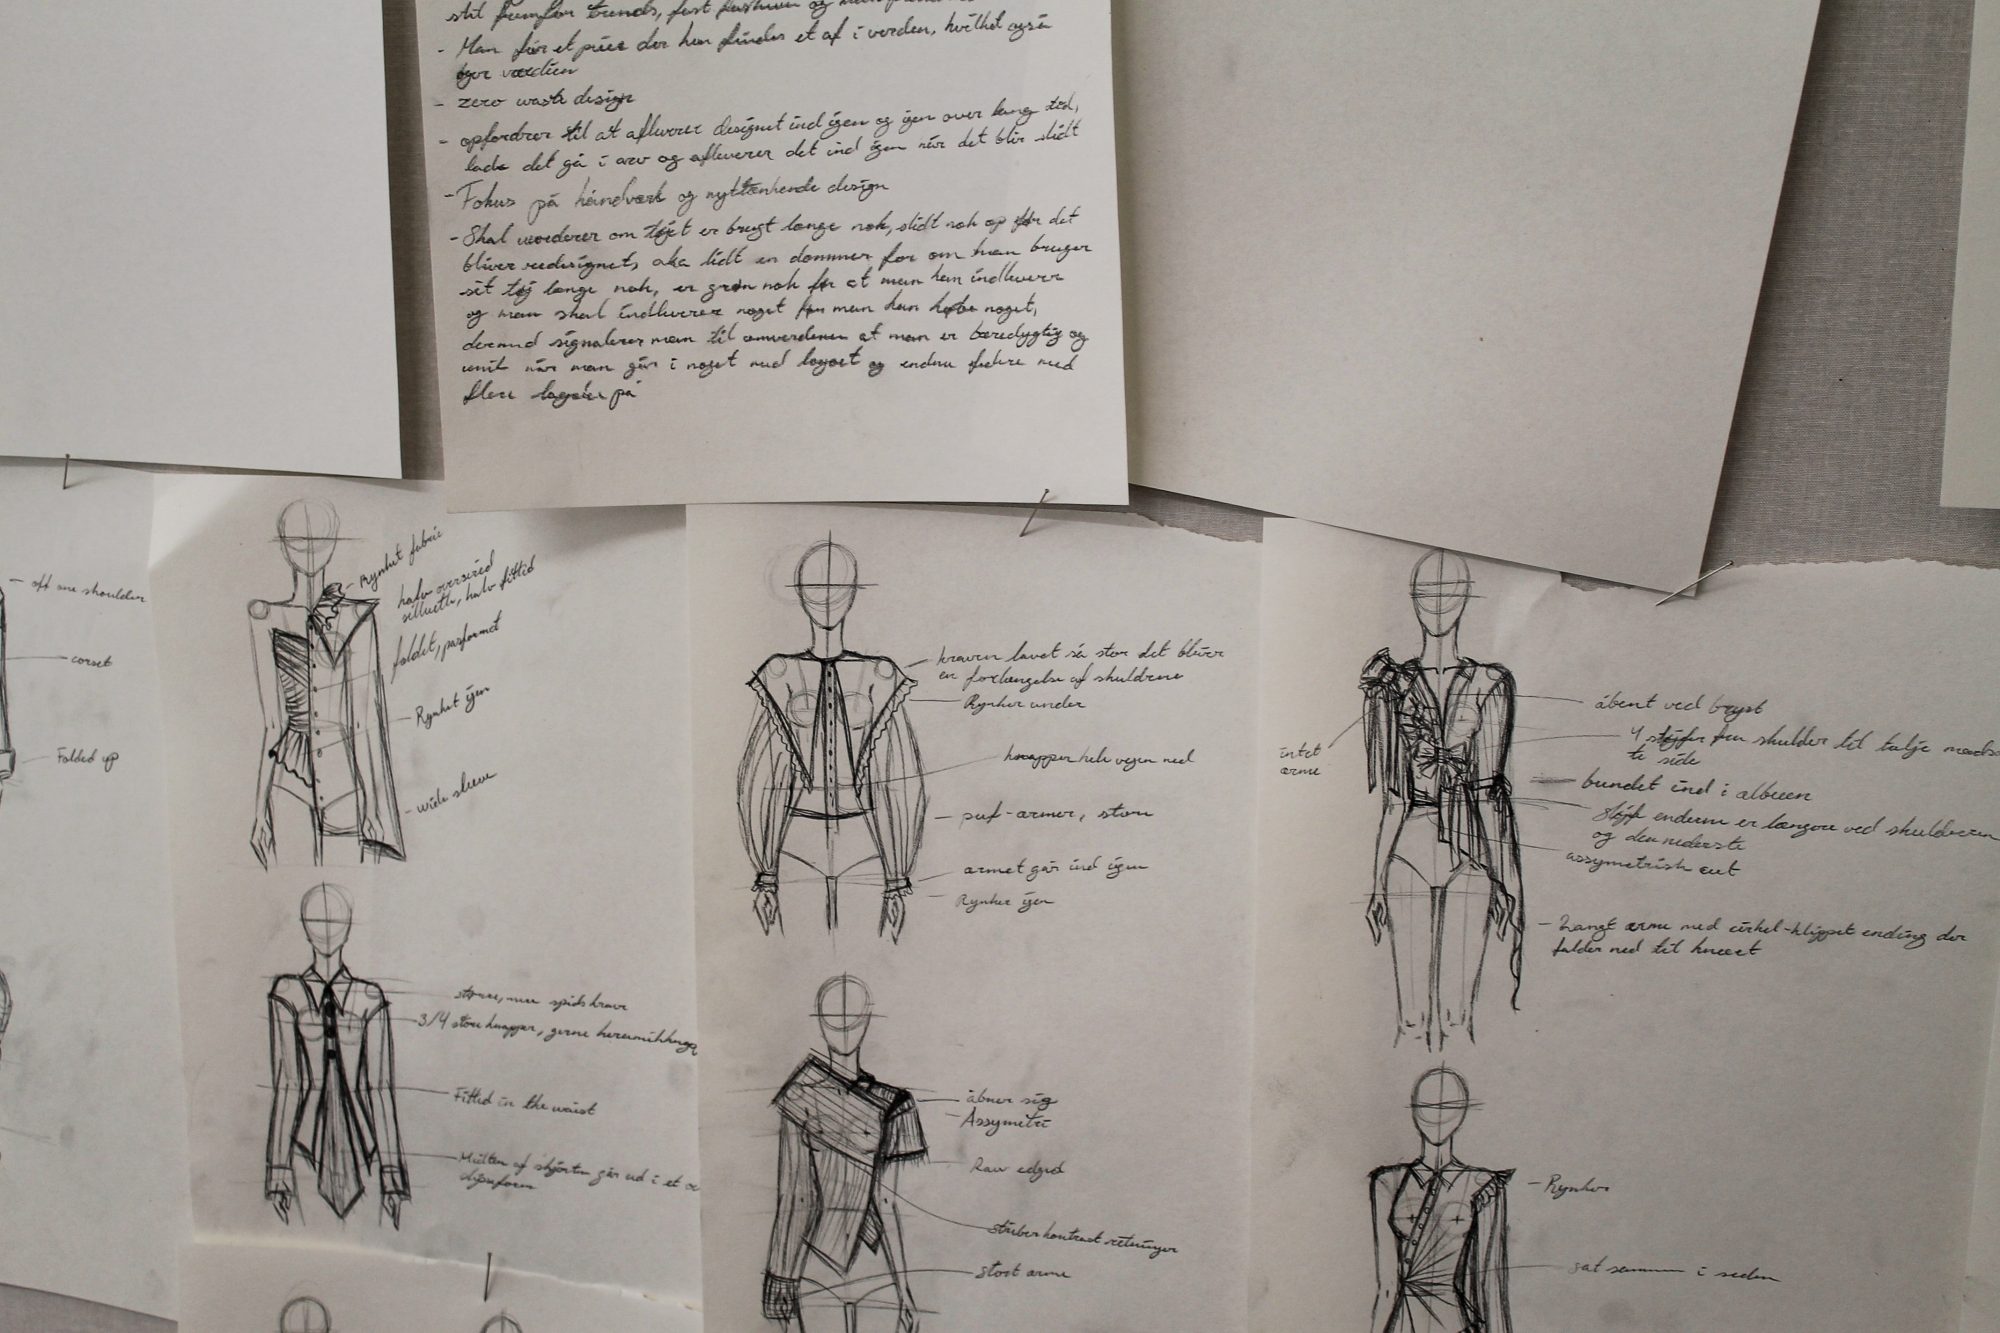 stil fremfor trends, fast fashion og
- Man får et piece der kun findes et af i verden, hvilket også
øger værdien
- zero waste design
- opfordrer til at aflevere designet ind igen og igen over lang tid,
lade det gå i arv og afleverer det ind igen når det blir slidt
- Fokus på håndværk og nyttænkende design
- Skal vurderer om tøjet er brugt længe nok, slidt nok op før det
bliver redesignet, aka lidt en dommer for om man bruger
sit tøj længe nok, er grøn nok før at man kan indleverer
og man skal indleverer noget før man kan købe noget,
dermed signalerer man til omverdenen at man er bæredygtig og
unik når man går i noget med logoet og endnu federe med
flere logoer på
- off one shoulder
corset
Folded up
- Rynket fabric
halv oversized
silhueth, halv fitted
foldet, pasformet
- Rynket igen
- wide sleeve
større, mere spids krave
3/4 store knapper, gerne
Fitted in the waist
Midten af skjorten går ud i et
slipseform
kraven lavet så stor det bliver
en forlængelse af skuldrene
Rynker under
knapper hele vejen ned
- puf-ærmer, store
ærmet går ind igen
Rynker igen
åbner sig
Assymetri
Raw edged
striber kontrast retninger
stort ærme
intet
ærme
åbent ved bryst
4 sløjfer fra skulder til talje modsat
te side
bundet ind i albuen
Sløjf enderne er længere ved skulderen
og den nederste
assymetrisk cut
- Langt ærme med cirkel-klippet ending der
falder ned til knæet
- Rynker
sat sammen i siden